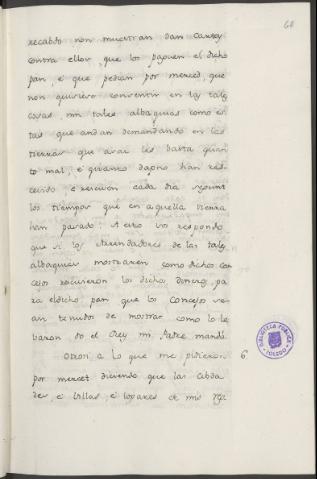 60
recabdo non muestran dan carrey
contra ellos, que los paguen el dicho
pan, é que pedian por merced, que
non quisiese consentir en las tales
cosas, nin tales albaquias como es
tas que andan demandando en las
tierras que asaz les basta quan
to mal, é quanto dapno han res-
cevido, é resciven cada dia segunt
los tiempos que en aquella tierra
han pasado: A esto vos respondo
que si los Arrendadores de las tales
albaquias mostraren como dichos con
cejos rescivieron los dichos dineros pa
ra el dicho pan que los Concejos se-
an tenudos de mostrar como lo le
baron do el Rey mi Padre mandó.
Otrosi a lo que me pidieron 6
por mercet diciendo que las Cibda
des é Villas, é logares de mis Reg
BIBLIOTECA PUBLICA
TOLEDO